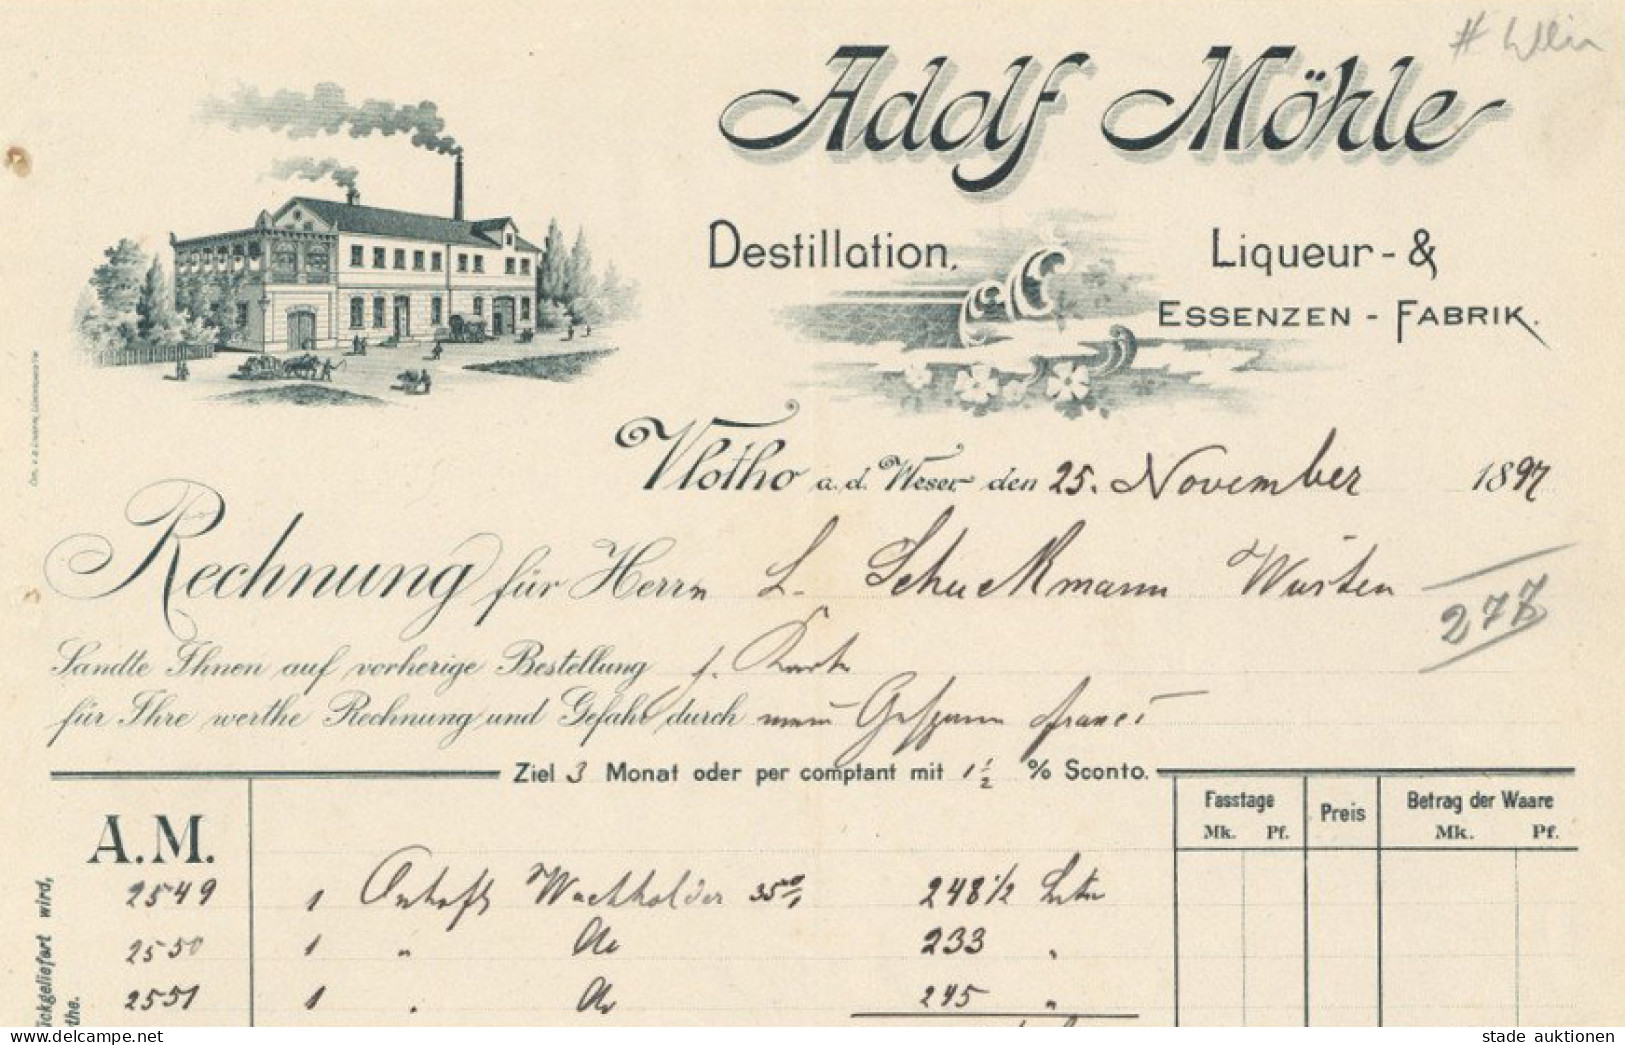 Adolf Möhle
Destillation, Liqueur- &
Essenzen-Fabrik.
Vlotho a. d. Weser den 25. November 1897
Rechnung für Herrn L. Schuckmann Wüsten
277
Sandte Ihnen auf vorherige Bestellung p. Karte
für Ihre werthe Rechnung und Gefahr durch mein Gespann franco
Ziel 3 Monat oder per comptant mit 1 1/2 % Sconto.
Fasstage Preis Betrag der Waare
Mk. Pf. Mk. Pf.
A.M.
2549 1 Oxhoft Wachholder 35 % 248 1/2 Liter
2550 1 " do 233 "
2551 1 " do 245 "
ückgeliefert wird,
the.
delcampe.net
stade auktionen